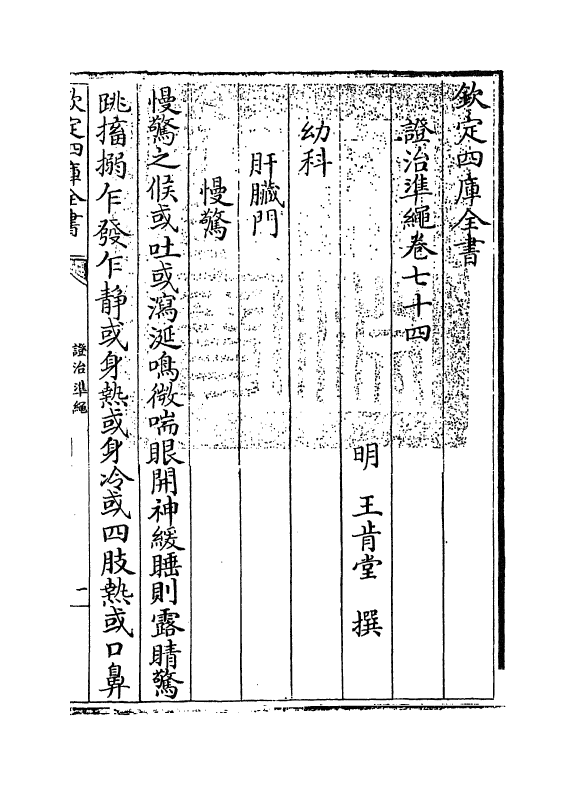 欽定四庫全書
證治準繩卷七十四
明 王肯堂 撰
幼科
肝臟門
慢驚
慢驚之候或吐或瀉涎鳴微喘眼開神緩睡則露睛驚
跳搐搦乍發乍靜或身熱或身冷或四肢熱或口鼻
欽定四庫全書
證治準繩